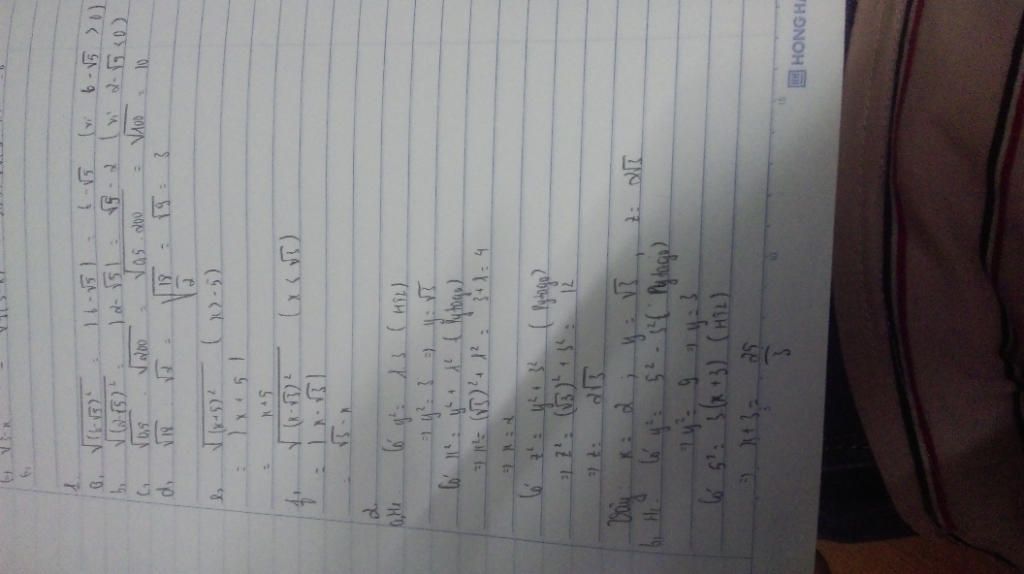 1.
a, √(6-√5)² = |6-√5| = 6-√5 (vì 6-√5 > 0)
b, √(2-√5)² = |2-√5| = √5-2 (vì 2-√5 < 0)
c, √0,5 . √200 = √0,5.200 = √100 = 10
d, √18 : √2 = √18/2 = √9 = 3
e, √(x-5)² (x ≥ -5)
= |x+5|
= x+5
f, √(x-√3)² (x < √3)
= |x-√3|
= √3-x
2.
a, Hc Có y² = 1.3 (HTL)
⇒ y² = 3 ⇒ y = √3
Có x² = y² + 1² (Pytago)
⇒ x² = (√3)² + 1² = 3+1 = 4
⇒ x = 2
Có z² = y² + 3² (Pytago)
⇒ z² = (√3)² + 3² = 12
⇒ z = 2√3
Vậy x = 2 ; y = √3 ; z = 2√3
b, Hc Có y² = 5² - 4² (Pytago)
⇒ y² = 9 ⇒ y = 3
Có 5² = 3(x+3) (HTL)
⇒ x+3 = 25/3
HONGHA